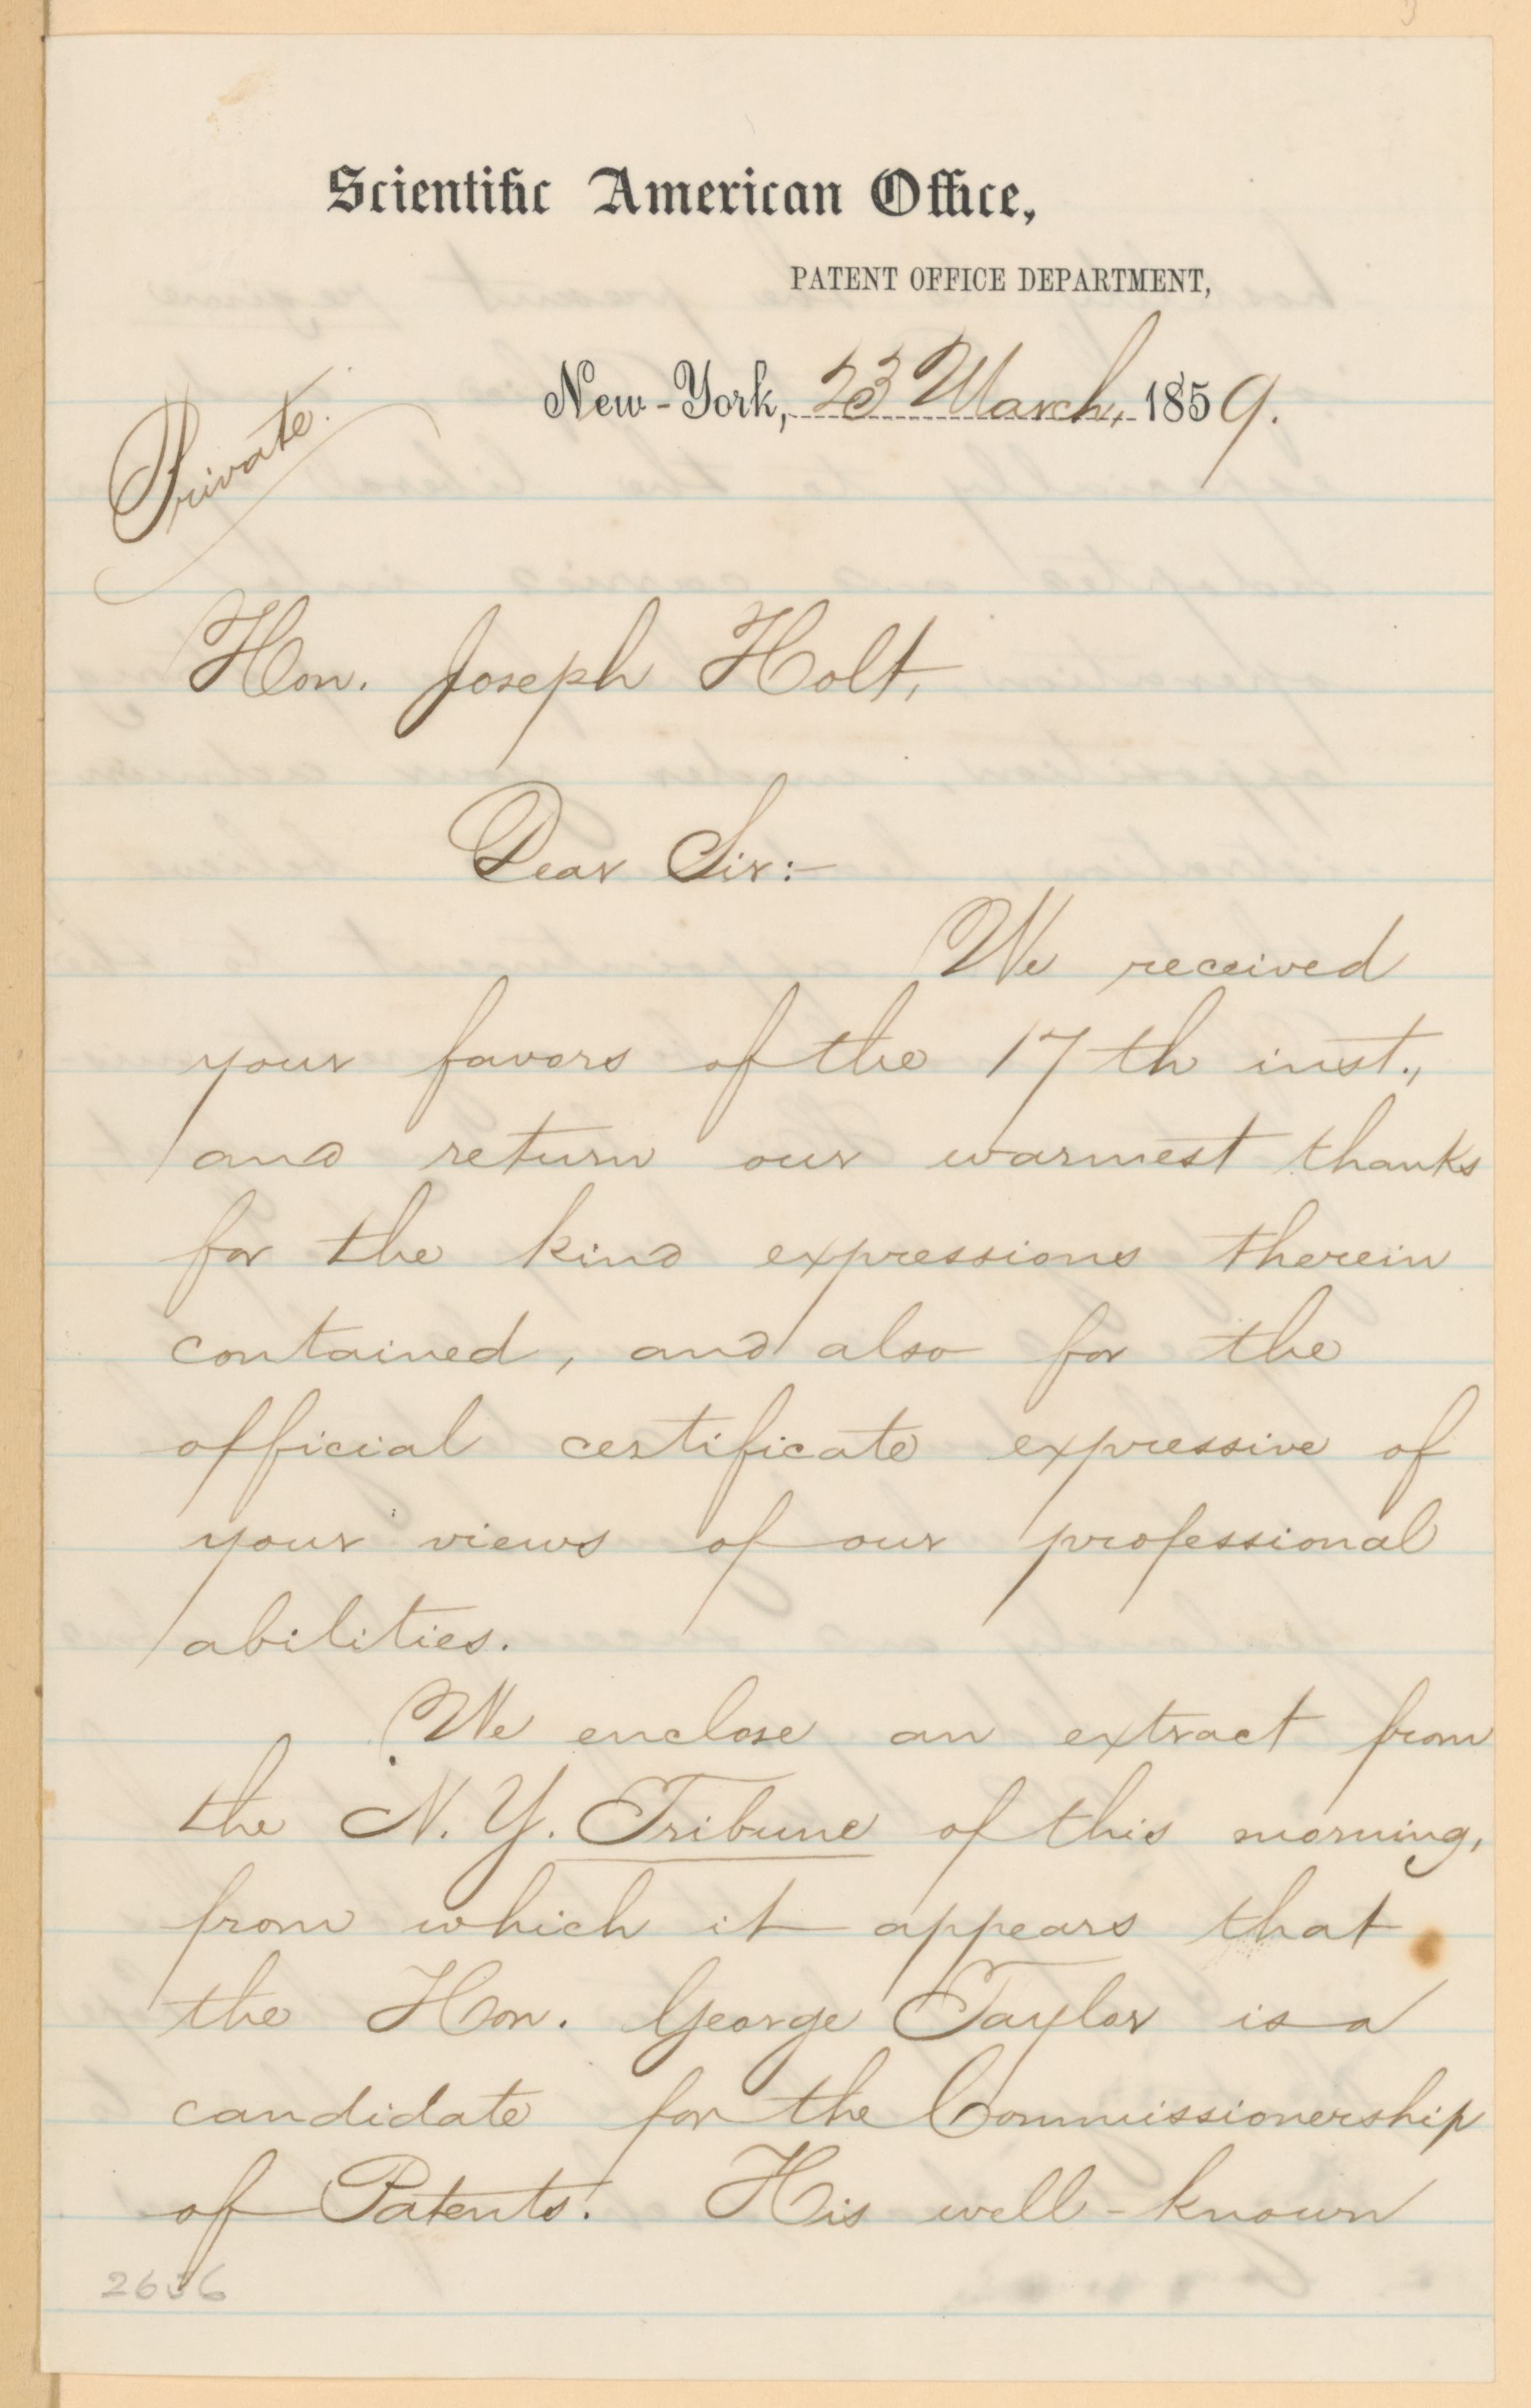 Scientific American Office,
PATENT OFFICE DEPARTMENT,
New-York, 23 March, 1859.
Private.
Hon. Joseph Holt,
Dear Sir:-
We received
your favors of the 17th inst.,
and return our warmest thanks
for the kind expressions therein
contained, and also for the
official certificate expressive of
your views of our professional
abilities.
We enclose an extract from
the N. Y. Tribune of this morning,
from which it appears that
the Hon. George Taylor is a
candidate for the Commissionership
of Patents! His well-known
2636